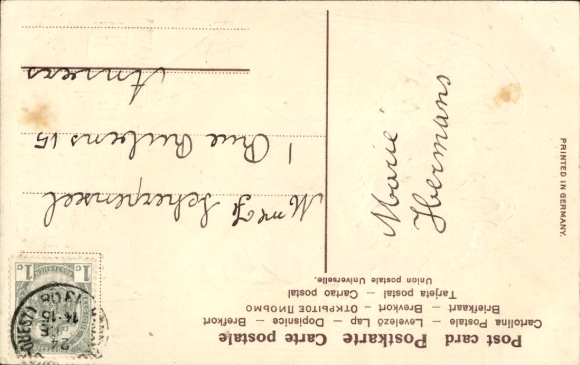 Post card Postkarte Carte postale
Cartolina Postale — Levelező Lap — Dopisnice — Brefkort
Briefkaart — Brevkort — ОТКРЫТОЕ ПИСЬМО
Tarjeta postal — Cartao postal
Union postale Universelle.
1c 1c
24
14-15
1908
Marie
Hermans
Mme J Scherpenseel
1 Rue Rubens 15
Anvers
PRINTED IN GERMANY.